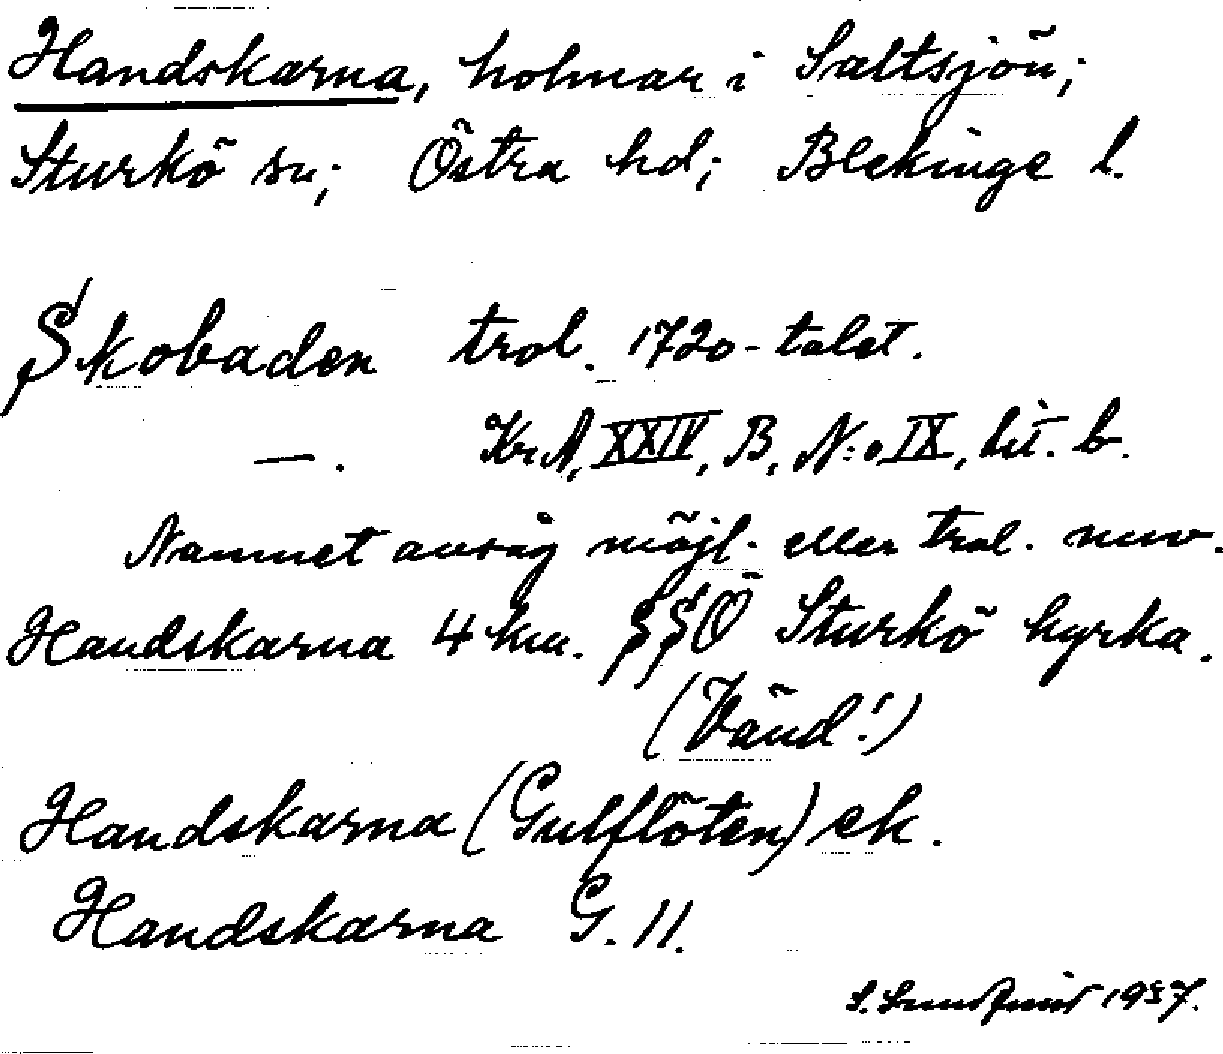 Handskarna, holmar i Saltsjön;
Sturkö sn; Östra hd; Blekinge l.
Skobaden trol. 1720-talet.
—. KrA, XXIV, B, N:o IX, lit. b.
Namnet avsåg möjl. eller trol. nuv.
Handskarna 4 km. SSÖ Sturkö kyrka.
(Vänd!)
Handskarna (Gulflöten) ek.
Handskarna G. 11.
1937.